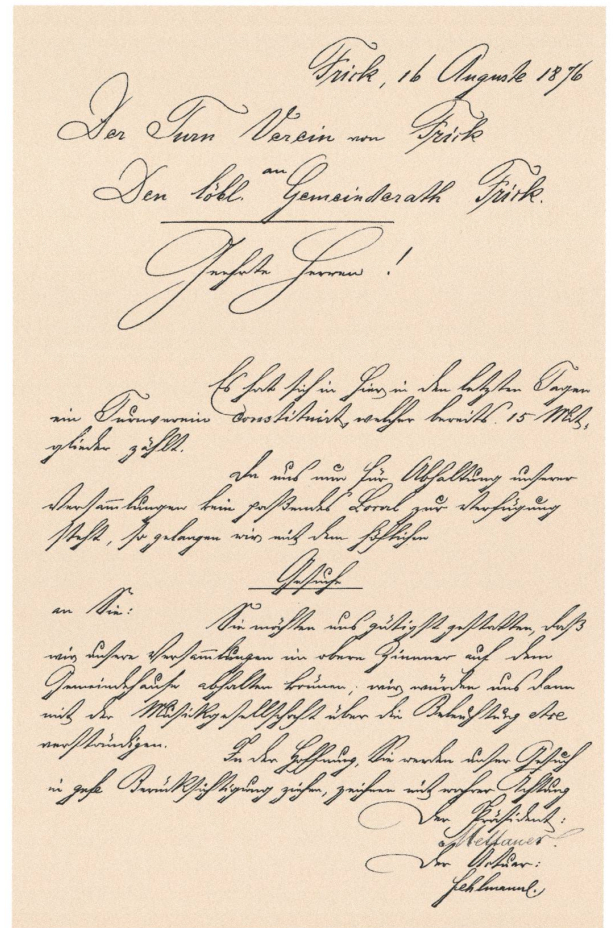 Frick, 16 Auguste 1876
Der Turn Verein von Frick
an
Den löbl. Gemeinderath Frick.
Geehrte Herren!
Es hat sich in hier in den letzten Tagen
ein Turnverein constituirt, welcher bereits 15 Mit-
glieder zählt.
Da uns nun für Abhaltung unserer
Versammlungen kein passendes Local zur Verfügung
steht, so gelangen wir mit dem höflichen
Gesuche
an Sie: Sie möchten uns gütigst gestatten, daß
wir unsere Versammlungen im obern Zimmer auf dem
Gemeindehause abhalten können; wir würden uns dann
mit der Musikgesellschaft über die Beleuchtung etc
verständigen.
In der Hoffnung, Sie werden unser Gesuch
in gefl. Berücksichtigung ziehen, zeichnen mit wahrer Achtung
Der Präsident:
Mettauer.
Der Actuar:
Fehlmann.